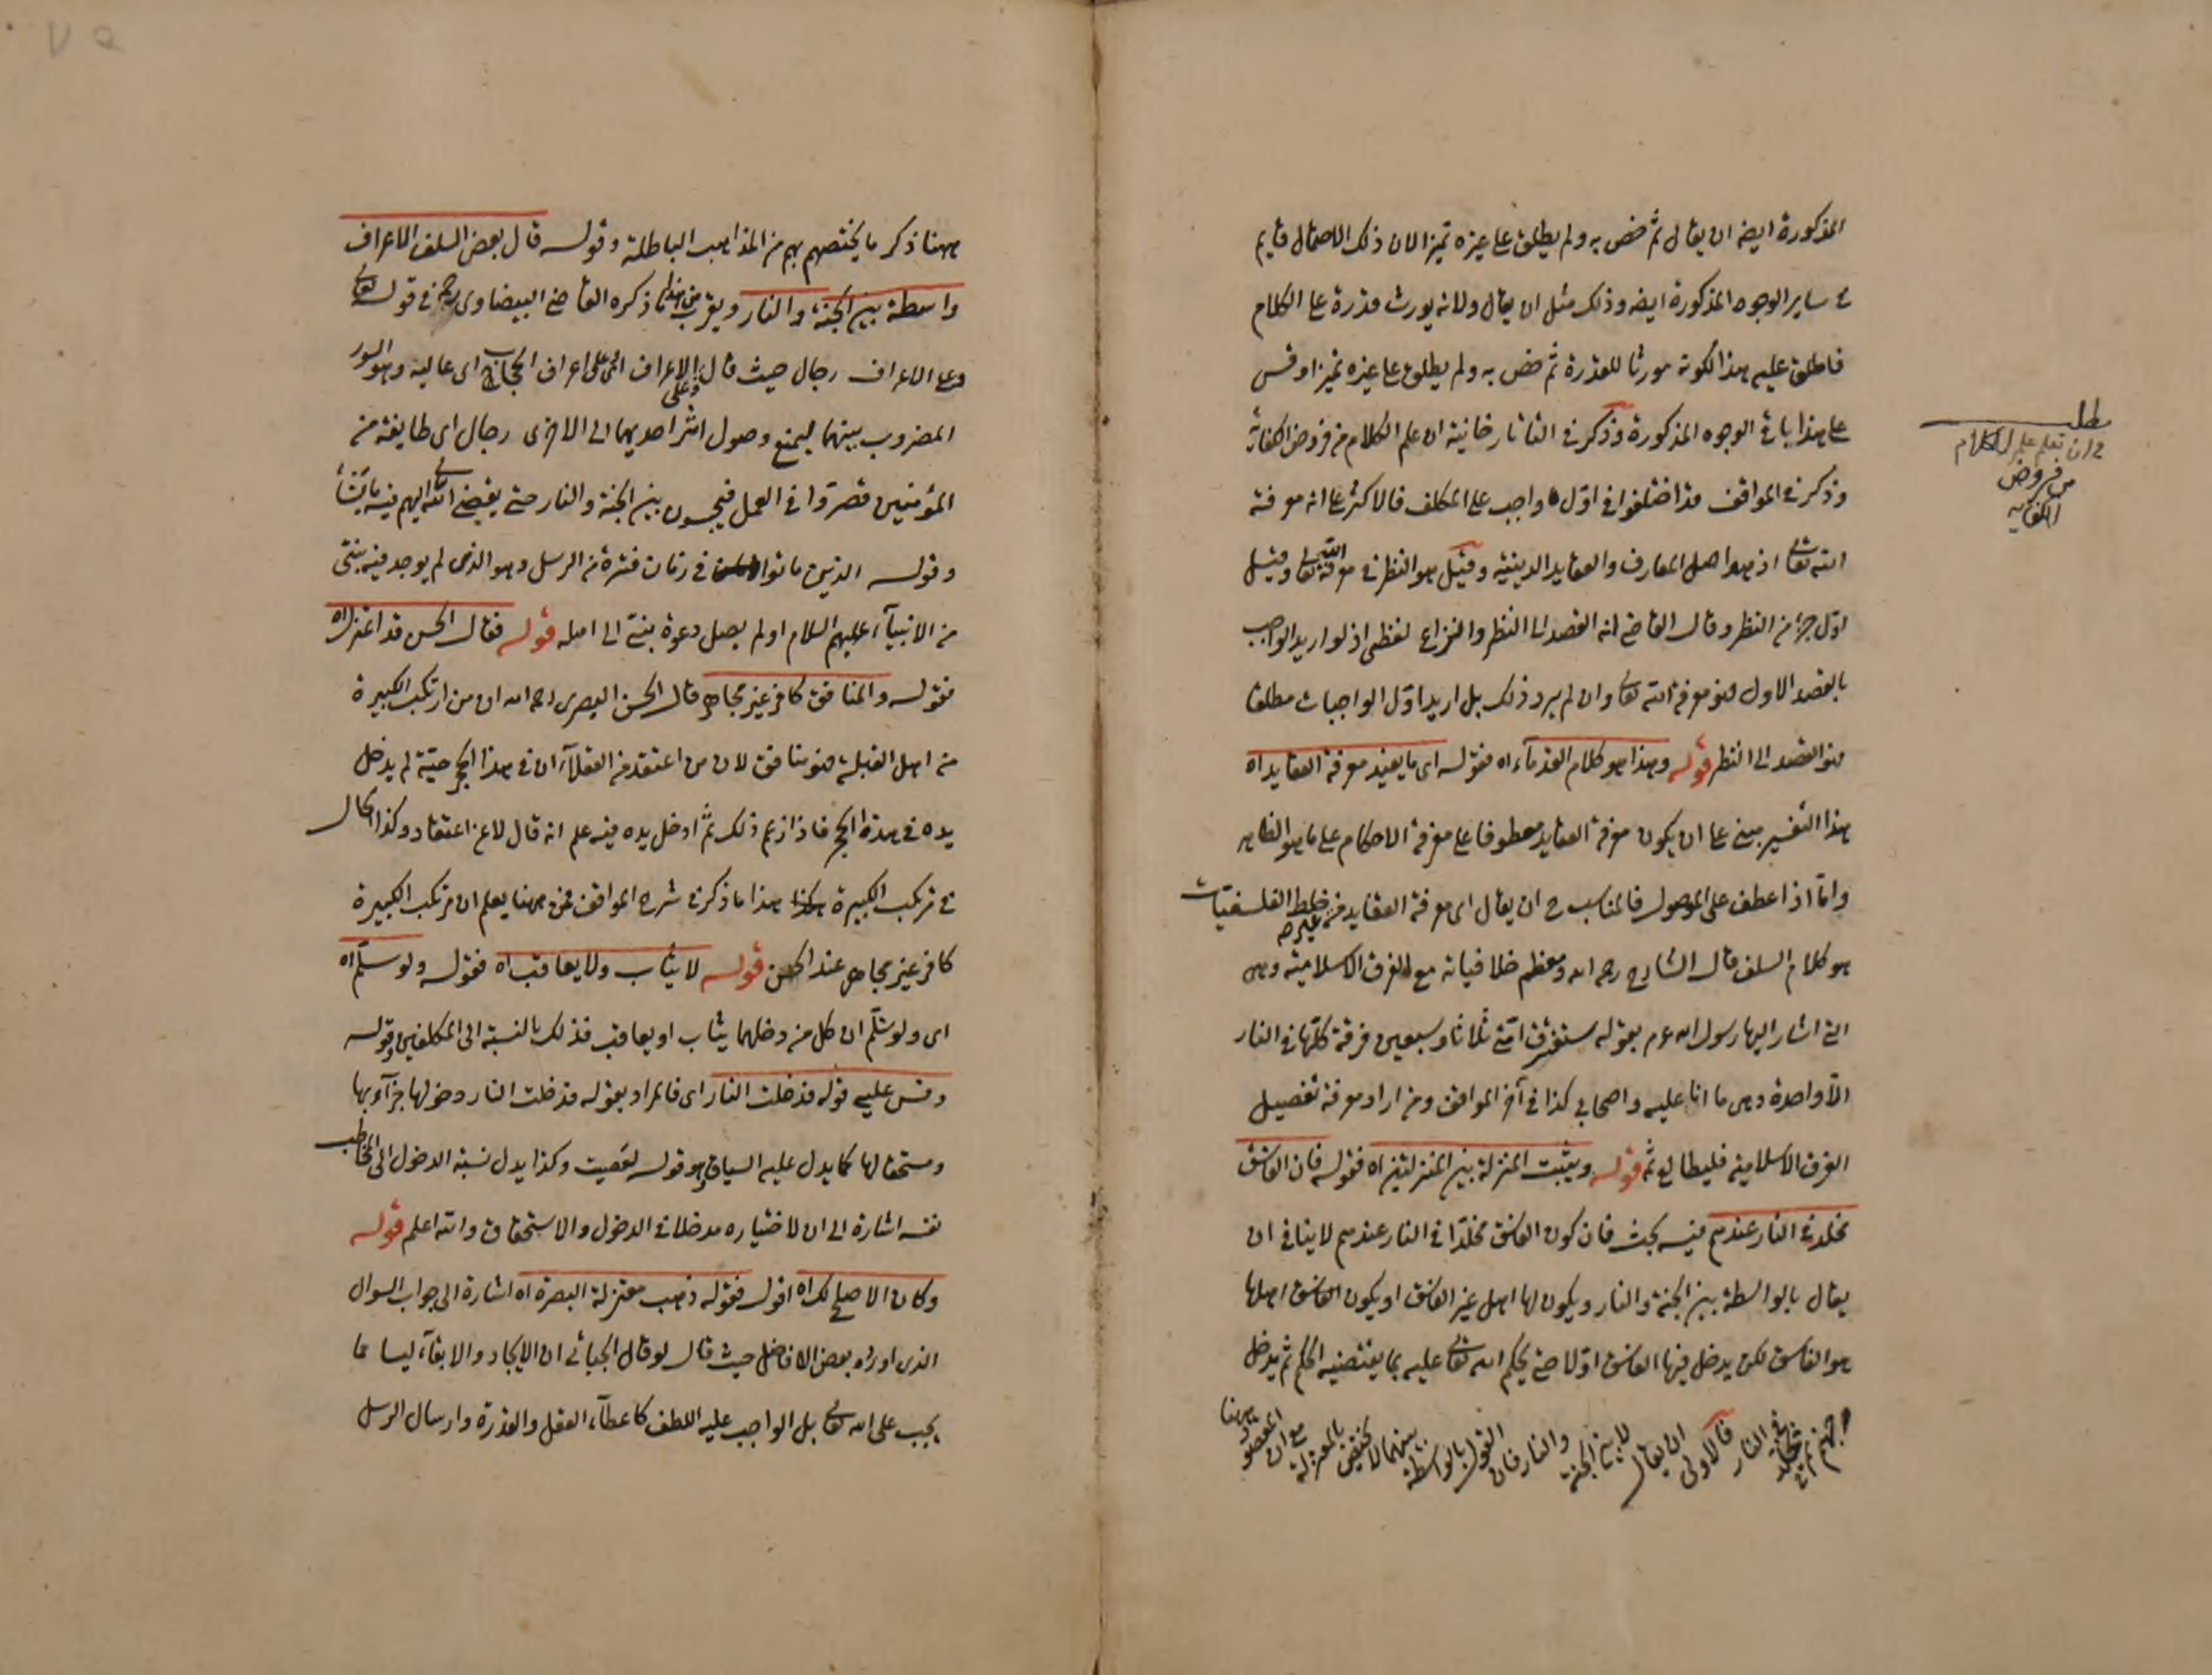 المذكورة ايضه ان يقال ثم خص به ولم يطلق على غيره تميزا لان ذلك الاحتمال قايم
في ساير الوجوه المذكورة ايضه وذلك مثل ان يقال ولانه يورث قدرة على الكلام
فاطلق عليه هذا لكونه مورثا للقدرة ثم خص به ولم يطلق على غيره تميزا وقس
على هذا باقي الوجوه المذكورة وذكر في التاتارخانية ان علم الكلام من فروض الكفاية
وذكر في المواقف قد اختلفوا في اول واجب على المكلف فالاكثر على انه معرفة
الله تعالى اذ هو اصل المعارف والعقايد الدينية وقيل هو النظر في معرفة الله تعالى وقيل
اول جزء من النظر وقال القاضي انه القصد الى النظر والنزاع لفظي اذ لو اريد الواجب
بالقصد الاول فهو معرفة الله تعالى وان لم يرد ذلك بل اريد اول الواجبات مطلقا
فهو القصد الى النظر قوله وهذا هو كلام القدماء اه فقوله اى ما يفيد معرفة العقايد اه
هذا التفسير مبني على ان يكون معرفة العقايد معطوفا على معرفة الاحكام على ما هو الظاهر
واما اذا عطف على الموصول فالمناسب ح ان يقال اى معرفة العقايد من غير خلط الفلسفيات
هو كلام السلف قال الشارح رحمه الله ومعظم خلافياته مع الفرق الاسلامية وهى
التي اشار اليها رسول الله عم بقوله ستفترق امتي ثلاثا وسبعين فرقة كلها في النار
الا واحدة وهى ما انا عليه واصحابي كذا في آخر المواقف ومن اراد معرفة تفصيل
الفرق الاسلامية فليطالع ثمه قوله ويثبت المنزلة بين المنزلتين اه فقوله فان الفاسق
مخلد في النار عندهم فيه بحث فان كون الفاسق مخلدا في النار عندهم لا ينافي ان
يقال بالواسطة بين الجنة والنار ويكون لها اهل غير الفاسق او يكون الفاسق اهلها
هو الفاسق لكن يدخل فيها الفاسق اولا حتى يحكم الله تعالى عليه بما يقتضيه الحكم ثم يدخل
جهنم ثم يخلد في النار فالاولى ان يقال لا بين الجنة والنار فان القول بالواسطة بينهما لا يختص بالمعتزلة مع ان المقصود هنا
مطلب
في ان تعلم علم الكلام
من فروض
الكفايه
ههنا ذكر ما يختصهم بهم من المذاهب الباطلة وقوله قال بعض السلف الاعراف
واسطة بين الجنة والنار ويقرب من هذا ما ذكره القاضي البيضاوى رحمه في قوله تعالى
وعلى الاعراف رجال حيث قال وعلى الاعراف اى على اعراف الحجاب اى عاليه وهو السور
المضروب بينهما ليمنع وصول اثر احديهما الى الاخرى رجال اى طايفة من
المؤمنين قصروا في العمل فيحبسون بين الجنة والنار حتى يقضي الله تعالى اليهم فيه ما يشاء
وقوله الذين ماتوا في زمان فترة من الرسل وهو الذى لم يوجد فيه نبي
من الانبياء عليهم السلام او لم يصل دعوة نبي الى اهله قوله فقال الحسن قد اعتزل اه
فقوله والمنافق كافر غير مجاهر قال الحسن البصرى رحمه الله ان من ارتكب الكبيرة
من اهل القبلة فهو منافق لان من اعتقد من العقلاء ان في هذا الجحر حية لم يدخل
يده في هذه الجحر فاذا زعم ذلك ثم ادخل يده فيه علم انه قال لا عن اعتقاد وكذا الحال
في مرتكب الكبيرة هذا ما ذكر في شرح المواقف فمن ههنا يعلم ان مرتكب الكبيرة
كافر غير مجاهر عند الحسن قوله لا يثاب ولا يعاقب اه فقوله ولو سلم اه
اى ولو سلم ان كل من دخلهما يثاب او يعاقب فذلك بالنسبة الى المكلفين وقوله
وقس عليه قوله فدخلت النار اى فالمراد بقوله فدخلت النار دخولها جزاء بها
ومستحقا لها كما يدل عليه السياق وهو قوله لعصيت وكذا يدل نسبة الدخول الى المخاطب
نفسه اشارة الى ان لاختياره مدخلا في الدخول والاستحقاق والله اعلم قوله
وكان الاصلح لك اه اقول فقوله ذهب معتزلة البصرة اه اشارة الى جواب السوال
الذى اورده بعض الافاضل حيث قال لو قال الجبائي ان الايجاد والابقاء ليسا مما
يجب على الله تعالى بل الواجب عليه اللطف كاعطاء العقل والقدرة وارسال الرسل